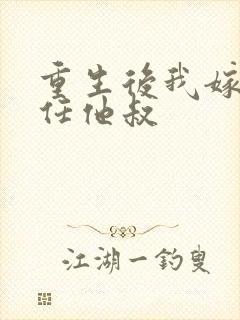 重生後我嫁
任他叔
江湖一釣叟